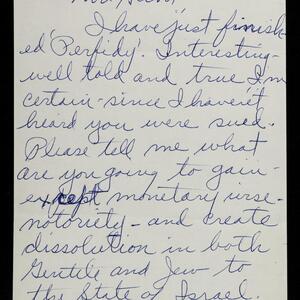 I have just finish-
ed 'Perfidy'. Interesting-
well told and true I'm
certain - since I haven't
heard you were sued.
Please tell me what
are you going to gain -
except monetary wise -
notoriety - and create
dissolution in both
Gentile and Jew to
the State of Israel.